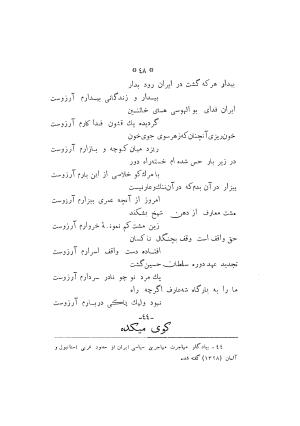 « ۴۸ »
بیداد هرکه گشت در ایران رود بدار
بیداد و زندگانی بیدارم آرزوست
ایران فدای بوالهوسی های خائنین
گردیده یك قشون فداکارم آرزوست
خون ریزی آنچنان که زهر سوی جوی خون
ریزد میان کوچه و بازارم آرزوست
در زیر بار حس شده ام خسته راه دور
با مرك کو خلاصی از این بارم آرزوست
بیزار از آن بدم که در آن ننك و عار نیست
امروز از آنچه عمری بیزارم آرزوست
مشت معارف از دهن شیخ نشکند
زین مشت کم نمونهٔ خروارم آرزوست
حق واقف است وقف بچنگال ناکسان
افتاده دست واقف اسرارم آرزوست
تجدید عهد دوره سلطان حسین گشت
یك مرد نو چو نادر سردارم آرزوست
ما را به بارگاه شه عارف اگرچه راه
نبود ولیك پاکی دربارم آرزوست
-۴۴-
کوی میکده
۴۴ - بیادگار مهاجرت مهاجرین سیاسی ایران از حدود غربی استانبول و
آلمان (۱۳۲۸) گفته شده.